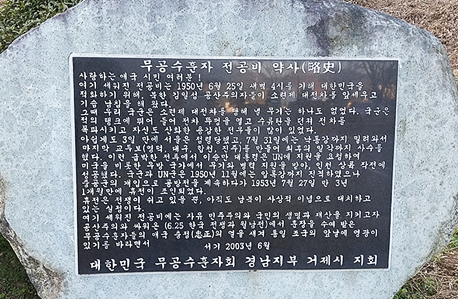 무공수훈자 전공비 약사(略史)
사랑하는 애국 시민 여러분!
여기 세워진 전공비는 1950년 6월 25일 새벽 4시를 기해 대한민국을
적화하기 위해 북한 김일성 공산주의자들이 소련제 대전차를 앞세우고
기습 남침을 해 왔다.
그때 우리 국군은 소련제 대전차를 당해 낼 무기는 하나도 없었다. 국군은
적의 탱크에 뛰어 올라 전차 뚜껑을 열고 수류탄을 던져 전차를
폭파시키고 자신도 산화한 용감한 전우들이 많이 있었다.
아쉽게도 3일 만에 서울은 점령당했고, 7월 31일에는 낙동강까지 밀려와서
마지막 교두보(영덕, 대구
했다. 이런 급박한 전투에서 이승만 대통령은 UN에 지원을 요청하여
미국을 비롯한 우방 국가에서 무기와 병력 지원을 받아, 인천 상륙 작전에
성공했다. 국군과 UN군은 1950년 11월에는 압록강까지 진격하였으나
중공군의 개입으로 공방전을 계속하다가 1953년 7월 27일 만 3년
1개월만에 휴전이 조인되었다.
휴전은 전쟁이 쉬고 있을 뿐, 아직도 남북이 사상적 이념으로 대치하고
있는 실정이다.
여기 세워진 전공비에는 자유 민주주의와 국민의 생명과 재산을 지키고자
공산주의와 싸워온 (6.25 한국 전쟁과 월남전)에서 훈장을 수여 받은
무공수훈자들의 애국 충정(忠正)의 얼을 새겨 통일 조국의 앞날에 영광이
있기를 바라면서 서기 2003년 6월
대한민국 무공수훈자회 경남지부 거제시 지회